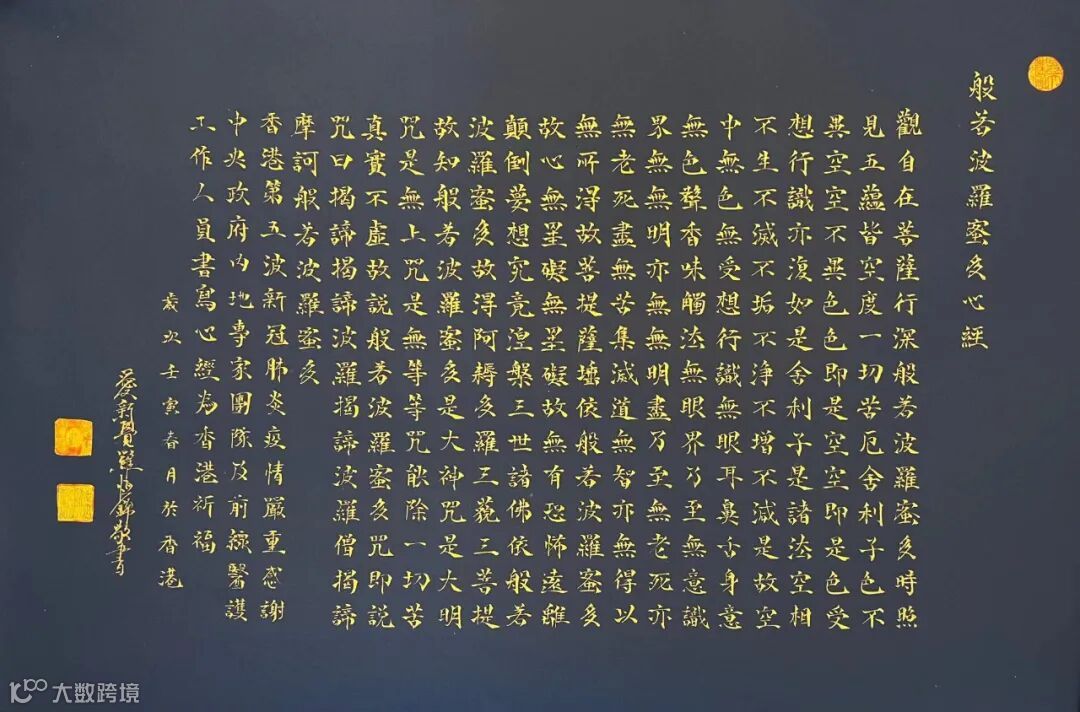 般若波羅蜜多心經
觀自在菩薩行深般若波羅蜜多時照
見五蘊皆空度一切苦厄舍利子色不
異空空不異色色即是空空即是色受
想行識亦復如是舍利子是諸法空相
不生不滅不垢不淨不增不減是故空
中無色無受想行識無眼耳鼻舌身意
無色聲香味觸法無眼界乃至無意識
界無無明亦無無明盡乃至無老死亦
無老死盡無苦集滅道無智亦無得以
無所得故菩提薩埵依般若波羅蜜多
故心無罣礙無罣礙故無有恐怖遠離
顛倒夢想究竟涅槃三世諸佛依般若
波羅蜜多故得阿耨多羅三藐三菩提
故知般若波羅蜜多是大神咒是大明
咒是無上咒是無等等咒能除一切苦
真實不虛故說般若波羅蜜多咒即說
咒曰揭諦揭諦波羅揭諦波羅僧揭諦
摩訶般若波羅蜜多
香港第五波新冠肺炎疫情嚴重感謝
中央政府內地專家團隊及前線醫護
工作人員書寫心經為香港祈福
歲次壬寅春月於香港
愛新覺羅敬書
大数跨境